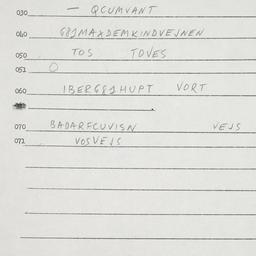 030 — QCUMVANT
040 G8JMAXDEMKINDVEJNEN
050 TOS TOVES
051 O
060 IBERG81HUPT VORT
070 BADARFCUVISN VEJS
071 VOSVEJS